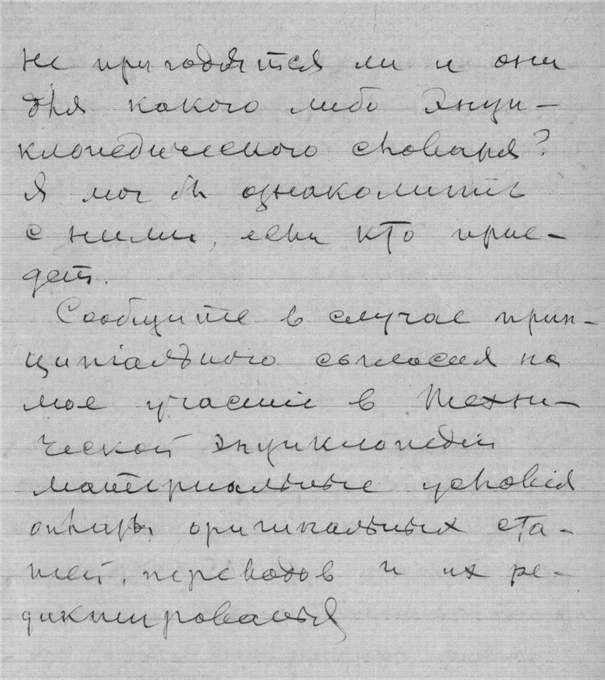 не пригодятся ли и они
для какого либо Энци-
клопедического словаря?
Я мог бы ознакомить
с ними, если кто прие-
дет.
Сообщите в случае прин-
ципіального согласия на
мое участие в Техни-
ческой Энциклопедіи
матеріальные условія
оплаты оригинальных ста-
тей, переводов и их ре-
дактирования